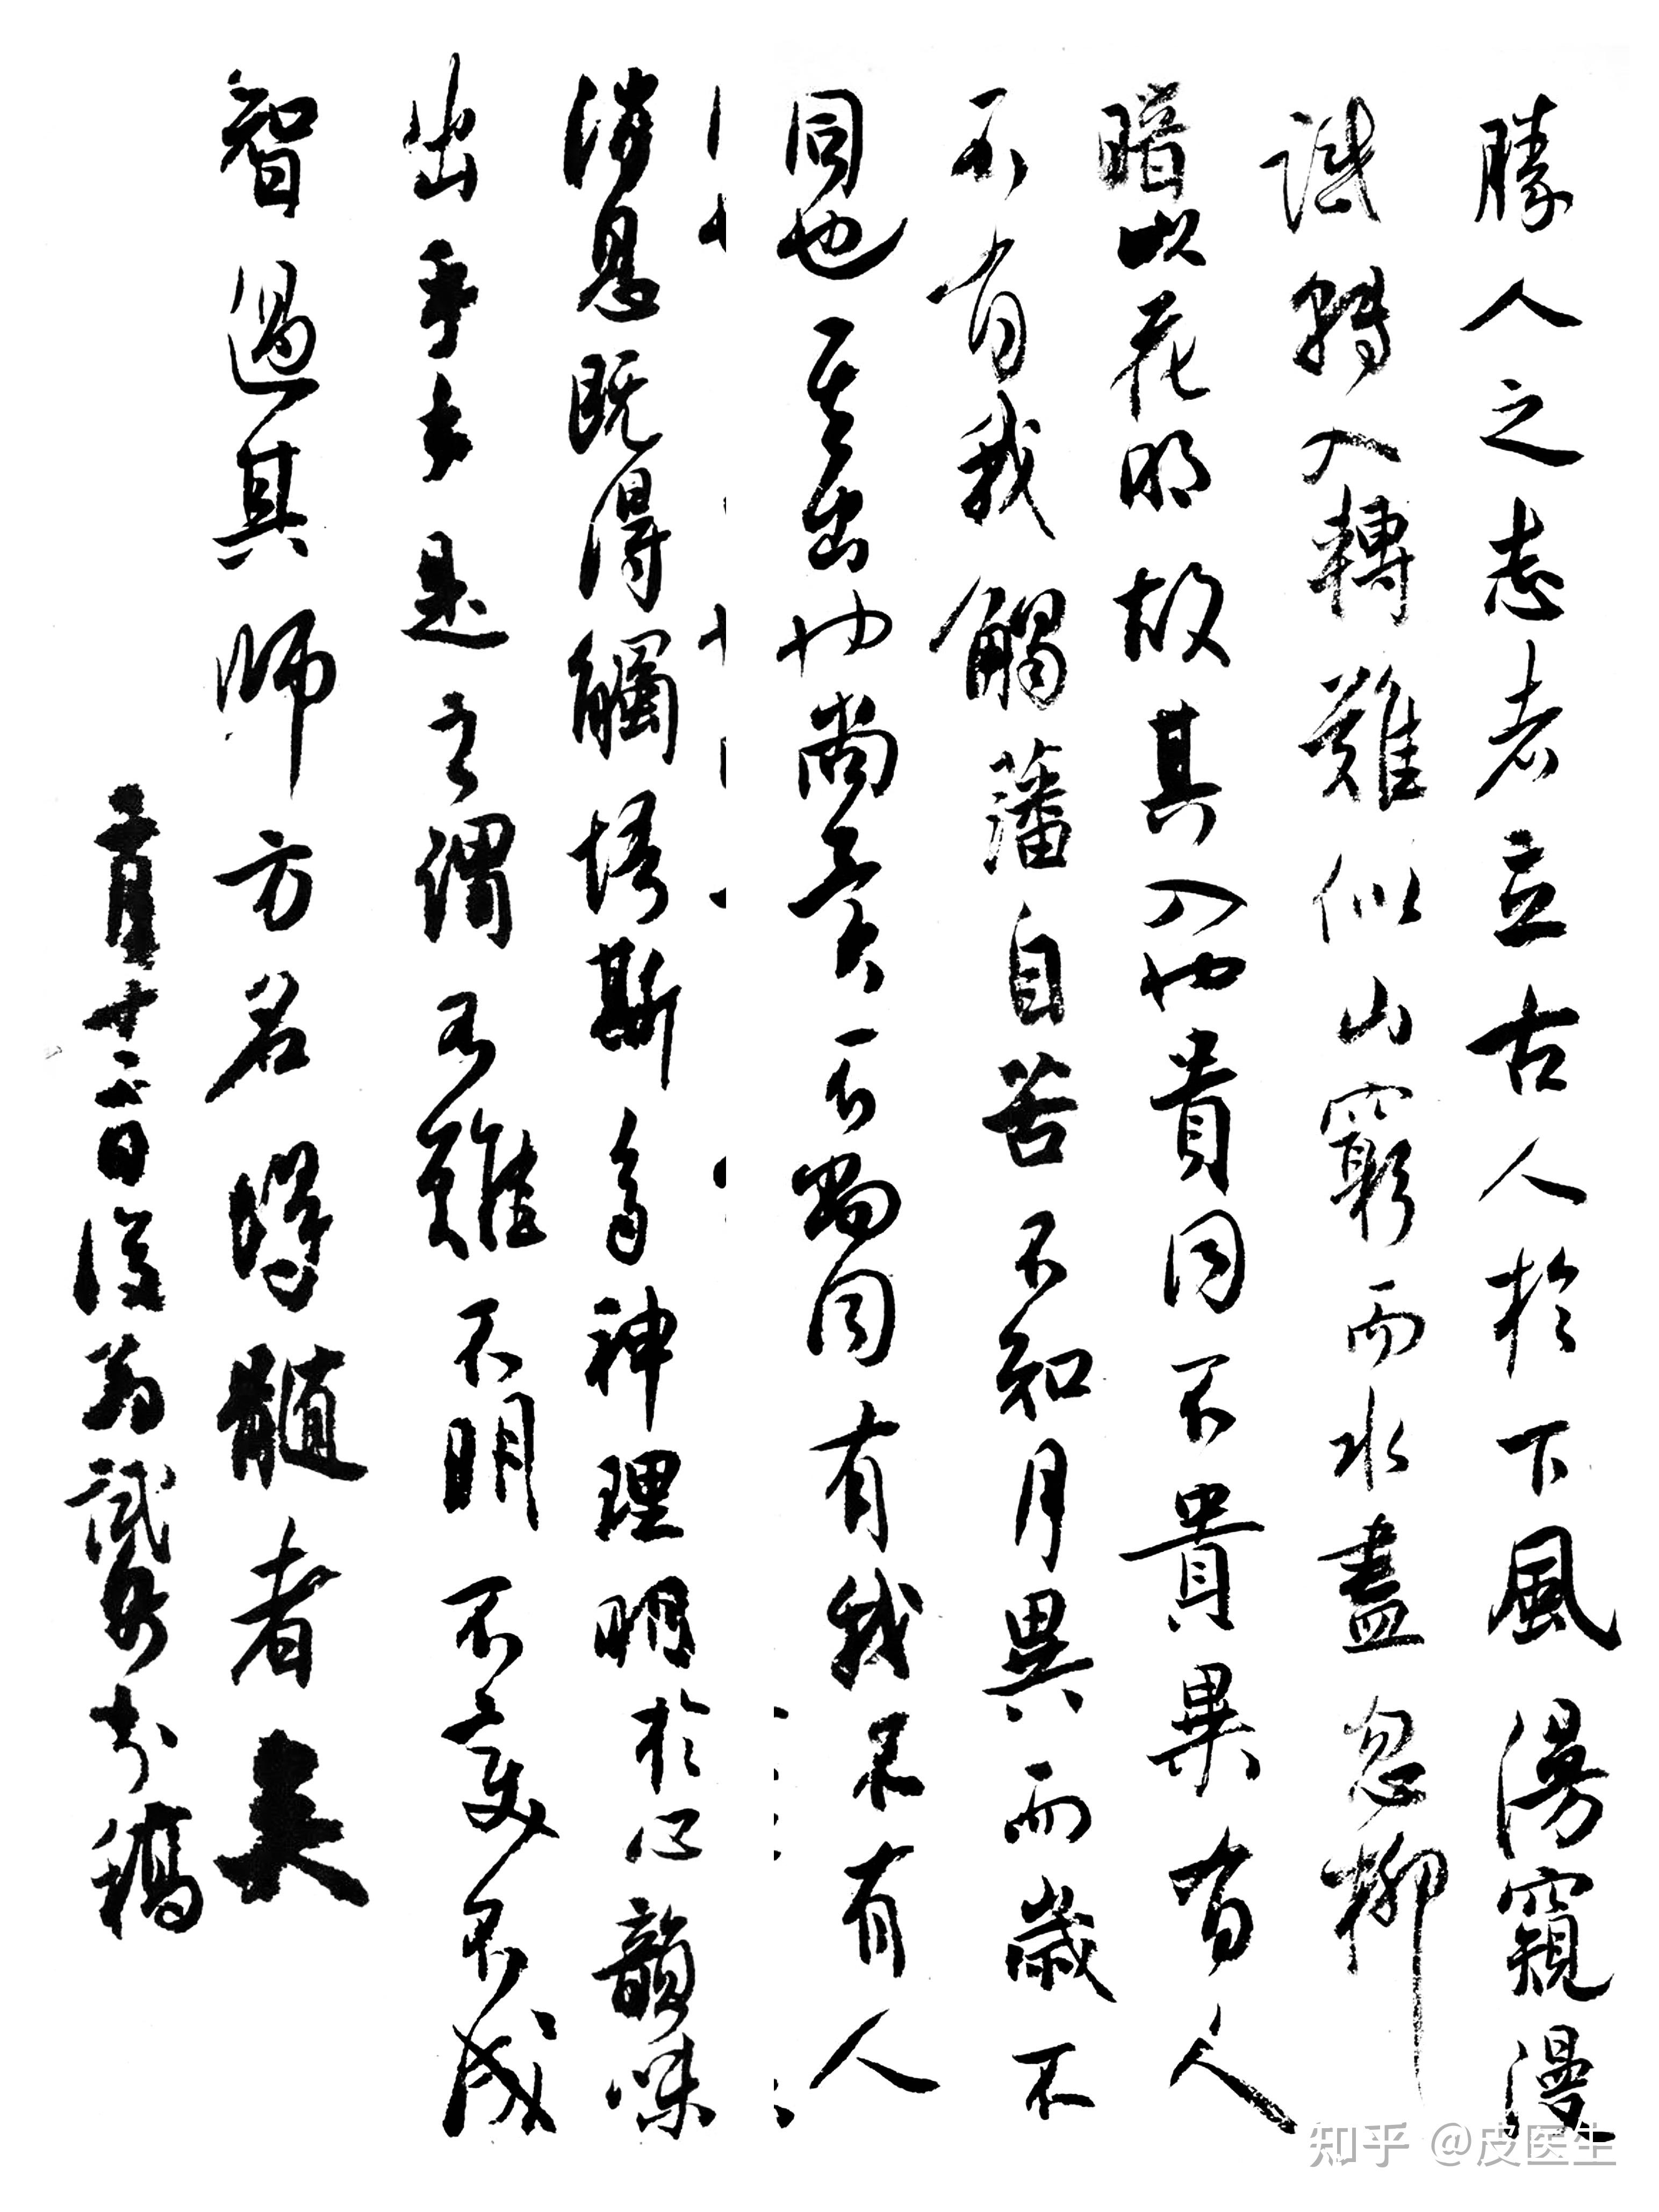 勝人之志者立古人於下風湯窺漫
識轉入轉難似山窮而水盡忽柳
暗花明故其入也貴同不貴異有人
不有我觸藩自苦不知月異而歲不
同也其出也尚異不尚同有我不有人
消息既得觸悟斯多神理明於心韻味
出乎手是之謂不難不明不變不成
智過其師方名得髓者矣
十二月十二日後為試筆書稿
知乎 @皮医生